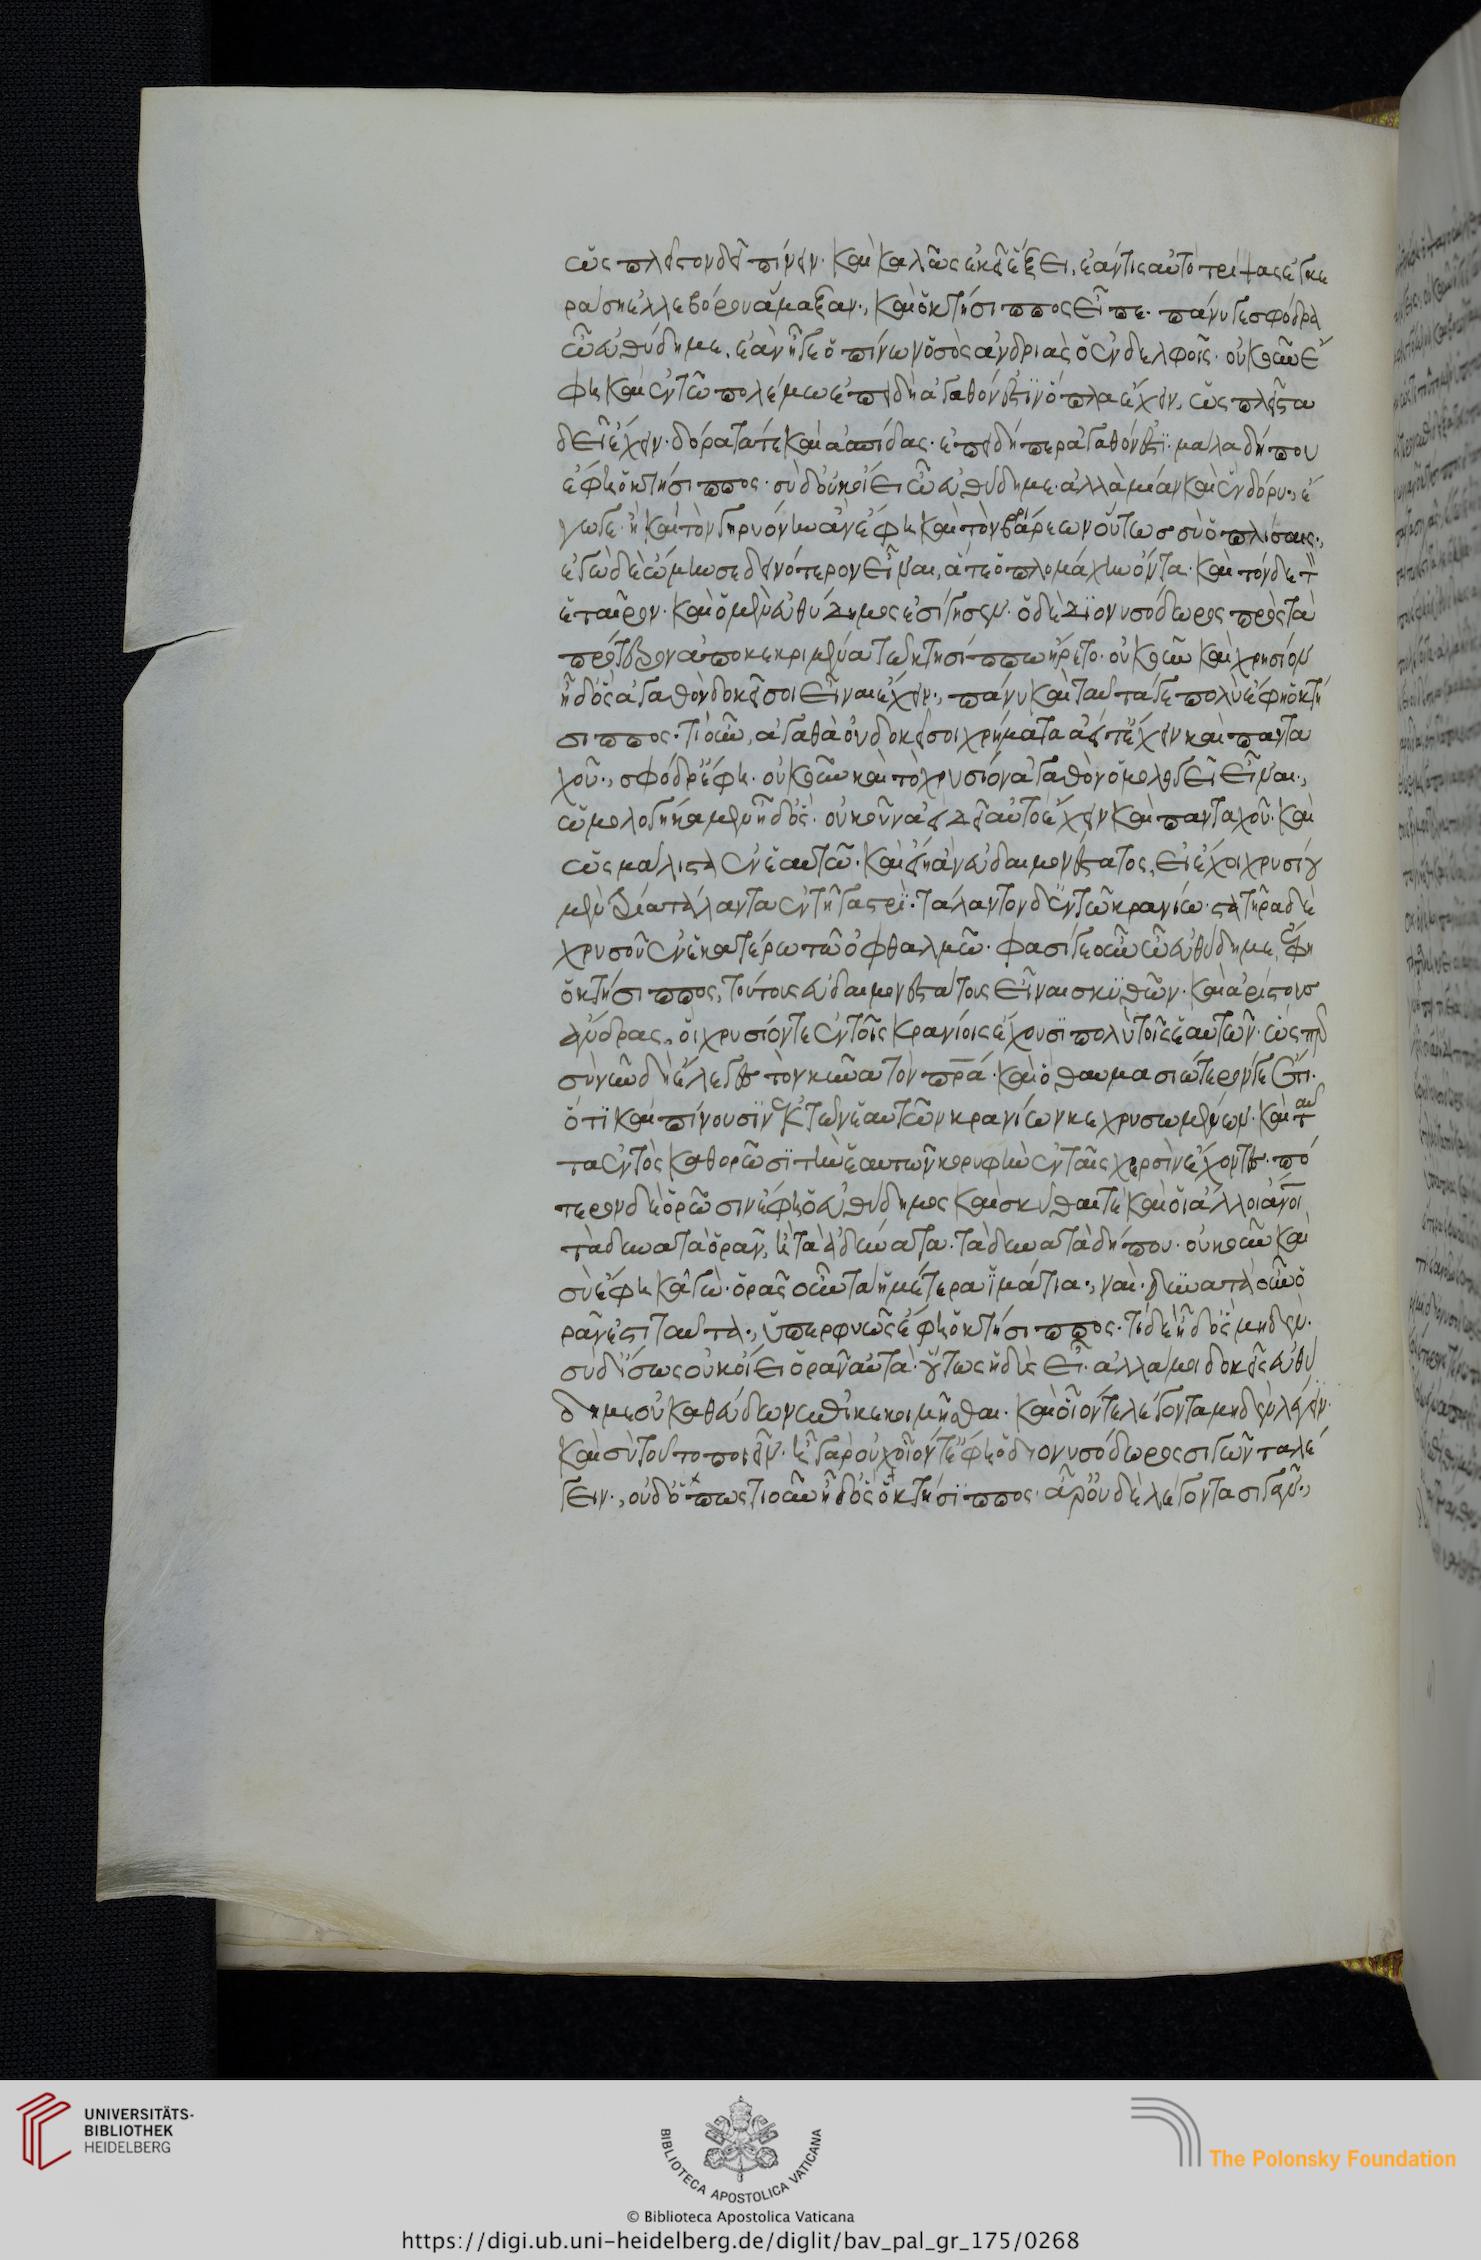 ὡς πλεῖστον δεῖ πίνειν· καὶ καλῶς ἐκεῖ ἕξει, ἐάν τις αὐτῷ τρίψας ἐγκε
ράσῃ ἐλλεβόρου ἅμαξαν., καὶ ὁ κτήσιππος εἶπε· πάνυ γε σφόδρα
ὦ εὐθύδημε, ἐὰν ᾖ γε ὁ πίνων ὅσος ἀνδριὰς ὁ ἐν δελφοῖς· οὐκοῦν ἔ
φη καὶ ἐν τῷ πολέμω ἐπειδὴ ἀγαθόν ἐστϊν ὅπλα ἔχειν, ὡς πλεῖστα
δεῖ ἔχειν· δόρατά τε καὶ ἀσπίδας· ἐπειδήπερ ἀγαθόν ἐστϊ· μάλα δήπου
ἔφη ὁ κτήσιππος· σὺ δ' οὐκ οἴει ὦ εὐθύδημε· ἀλλὰ μίαν καὶ ἓν δόρυ., ἔ
γωγε· ἦ καὶ τὸν γηρυόνην ἂν ἔφη καὶ τὸν βριάρεων οὕτως σὺ ὁπλίσαις.,
ἐγὼ δὲ ᾤμην σε δεινότερον εἶναι, ἅτε ὁπλομάχην ὄντα· καὶ τόνδε τὸν
ἑταῖρον· καὶ ὁ μὲν εὐθύδημος ἐσίγησεν· ὁ δὲ δϊονυσόδωρος πρὸς τὰ
πρότερον ἀποκεκριμένα τῷ κτησίππω ἤρετο· οὐκοῦν καὶ χρυσίον
ἦ δ' ὃς ἀγαθὸν δοκεῖ σοι εἶναι ἔχειν., πάνυ καὶ ταῦτά γε πολὺ ἔφη ὁ κτή
σιππος· τί οὖν, ἀγαθὰ οὐ δοκεῖ σοι χρήματα ἀεί τ' ἔχειν καὶ πανταχοῦ
χοῦ., σφόδρ' ἔφη· οὐκοῦν καὶ τὸ χρυσίον ἀγαθὸν ὁμολογεῖς εἶναι.,
ὡμολόγηκα μὲν ἦ δ' ὅς· οὐκοῦν ἀεὶ δεῖ αὐτὸ ἔχειν καὶ πανταχοῦ· καὶ
ὡς μάλιστα ἐν ἑαυτῷ· καὶ εἴη ἂν εὐδαιμονέστατος, εἰ ἔχοι χρυσίου
μὲν τρία τάλαντα ἐν τῇ γαστρϊ· τάλαντον δ' ἐν τῷ κρανίω· στατῆρα δὲ
χρυσοῦ ἐν ἑκατέρω τὠφθαλμῶ· φασί γε οὖν ὦ εὐθύδημε, ἔφη
ὁ κτήσιππος, τούτους εὐδαιμονεστάτους εἶναι σκϋθῶν· καὶ ἀρίστους
ἄνδρας, οἳ χρυσίον τε ἐν τοῖς κρανίοις ἔχουσϊ πολὺ τοῖς ἑαυτῶν· ὥσπερ
σὺ νῦν δὴ ἔλεγες τὸν κύνα τὸν πρα· καὶ ὃ θαυμασιώτερόν γε ἔτι·
ὅτϊ καὶ πίνουσϊν ἐκ τῶν ἑαυτῶν κρανίων κεχρυσωμένων· καὶ ταῦ
τα ἐντὸς καθορῶσϊ τὴν ἑαυτῶν κορυφὴν ἐν ταῖς χερσὶν ἔχοντες· πό
τερον δὲ ὁρῶσιν ἔφη ὁ εὐθύδημος καὶ σκύθαι τὲ καὶ οἱ ἄλλοι ἄνοι
τὰ δυνατὰ ὁρᾶν, ἢ τὰ ἀδύνατα· τὰ δυνατὰ δήπου· οὐκοῦν καὶ
σὺ ἔφη κἀγὼ· ὁρᾷς οὖν τὰ ἡμέτερα ἱμάτια., ναί· δυνατὰ οὖν ὁ
ρᾶν ἐστὶ ταῦτα., ὑπερφυῶς ἔφη ὁ κτήσιππος· τί δὲ ἦ δ' ὅς μηδέν·
σὺ δ' ἴσως οὐκ οἴει ὁρᾶν αὐτὰ· οὕτως ἡδὺς εἶ· ἀλλά μοι δοκεῖς εὐθύ
δημε οὐ καθεύδων ἐπικεκοιμῆσθαι· καὶ εἰ οἷόν τε λέγοντα μηδὲν λέγειν·
καὶ σὺ τοῦτο ποιεῖν· ἦ γὰρ οὐχ οἷόν τε ἔφη ὁ διονυσόδωρος σιγῶντα λέ
γειν., οὐδ' ὁπωστιοῦν ἦ δ' ὃς ὁ κτήσϊππος· ἆρ' οὐδὲ λέγοντα σιγᾶν.,
UNIVERSITÄTS-
BIBLIOTHEK
HEIDELBERG
BIBLIOTECA APOSTOLICA VATICANA
The Polonsky Foundation
© Biblioteca Apostolica Vaticana
https://digi.ub.uni-heidelberg.de/diglit/bav_pal_gr_175/0268